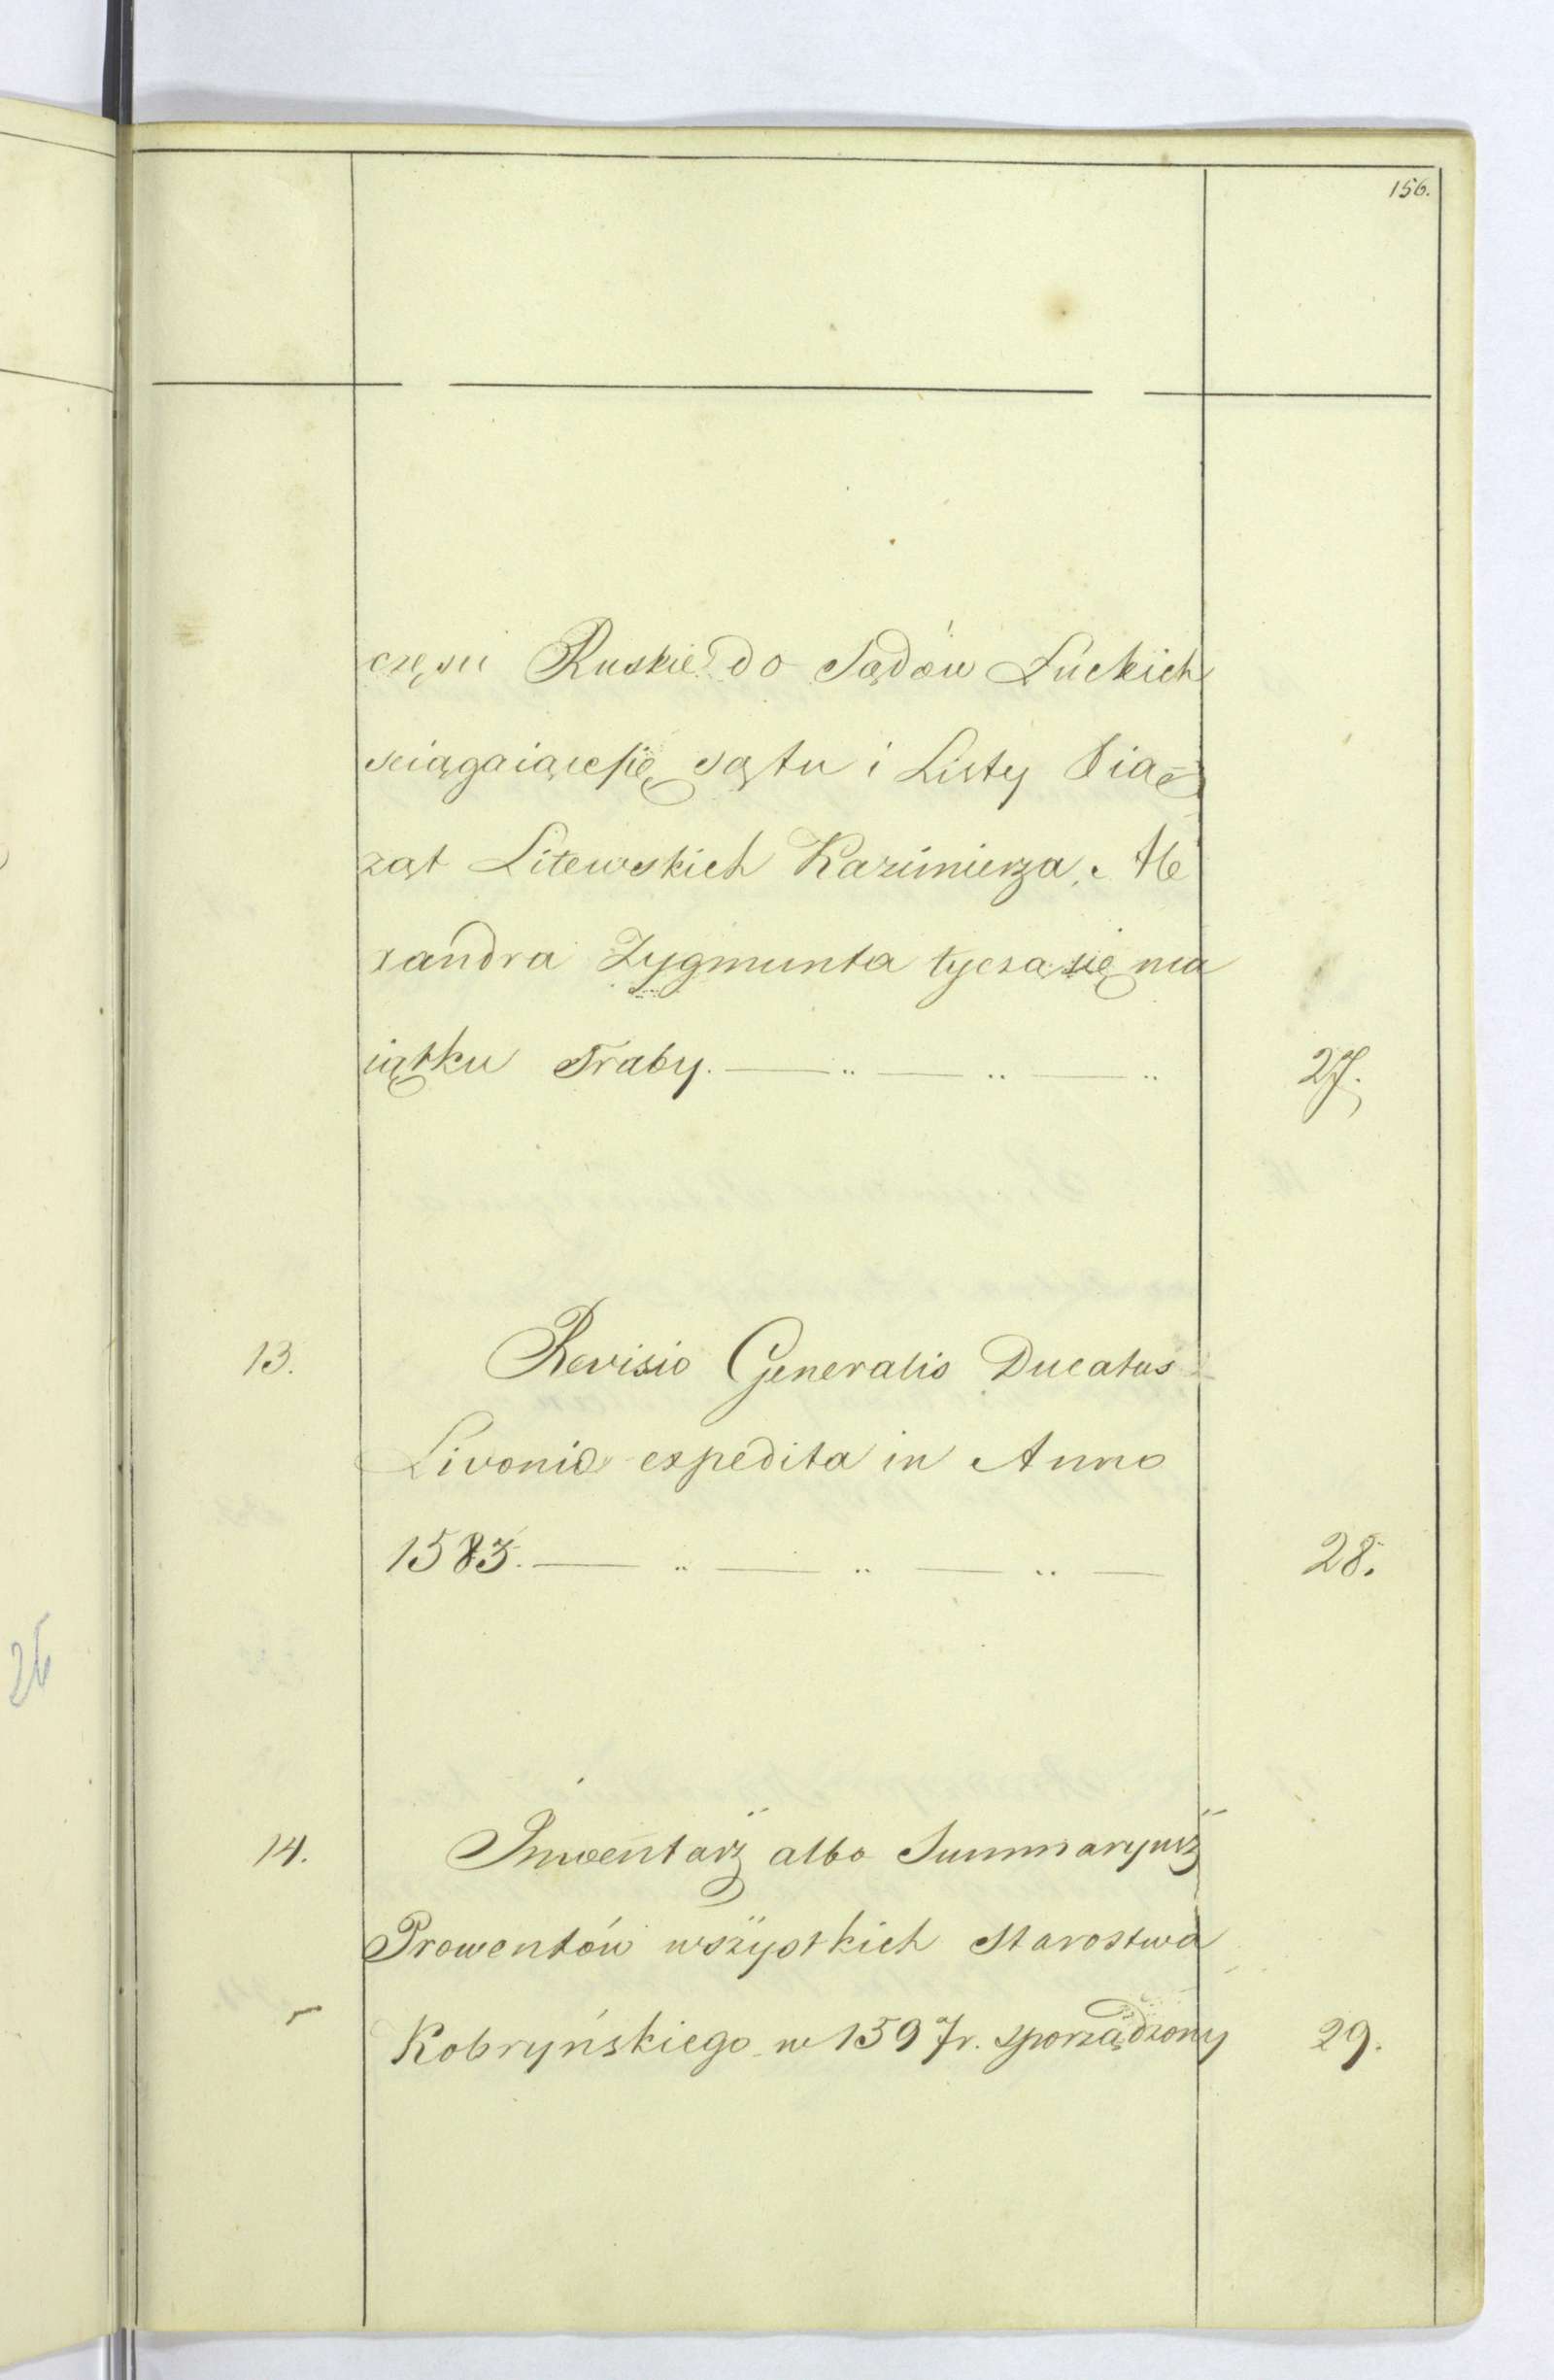 156.
częsci Ruskie do Sądów Łuckich
sciągaiące się są tu i Listy Xią=
ząt Litewskich Kazimierza, Ale
xandra Zygmunta tycza się ma
iątku Traby. 27.
13. Revisio Generalis Ducatus
Livoniæ expedita in Anno
1583. 28.
14. Inwentarz albo Summaryusz
Prowentów wszystkich Starostwa
Kobryńskiego w 1597 r. sporządzony 29.
26